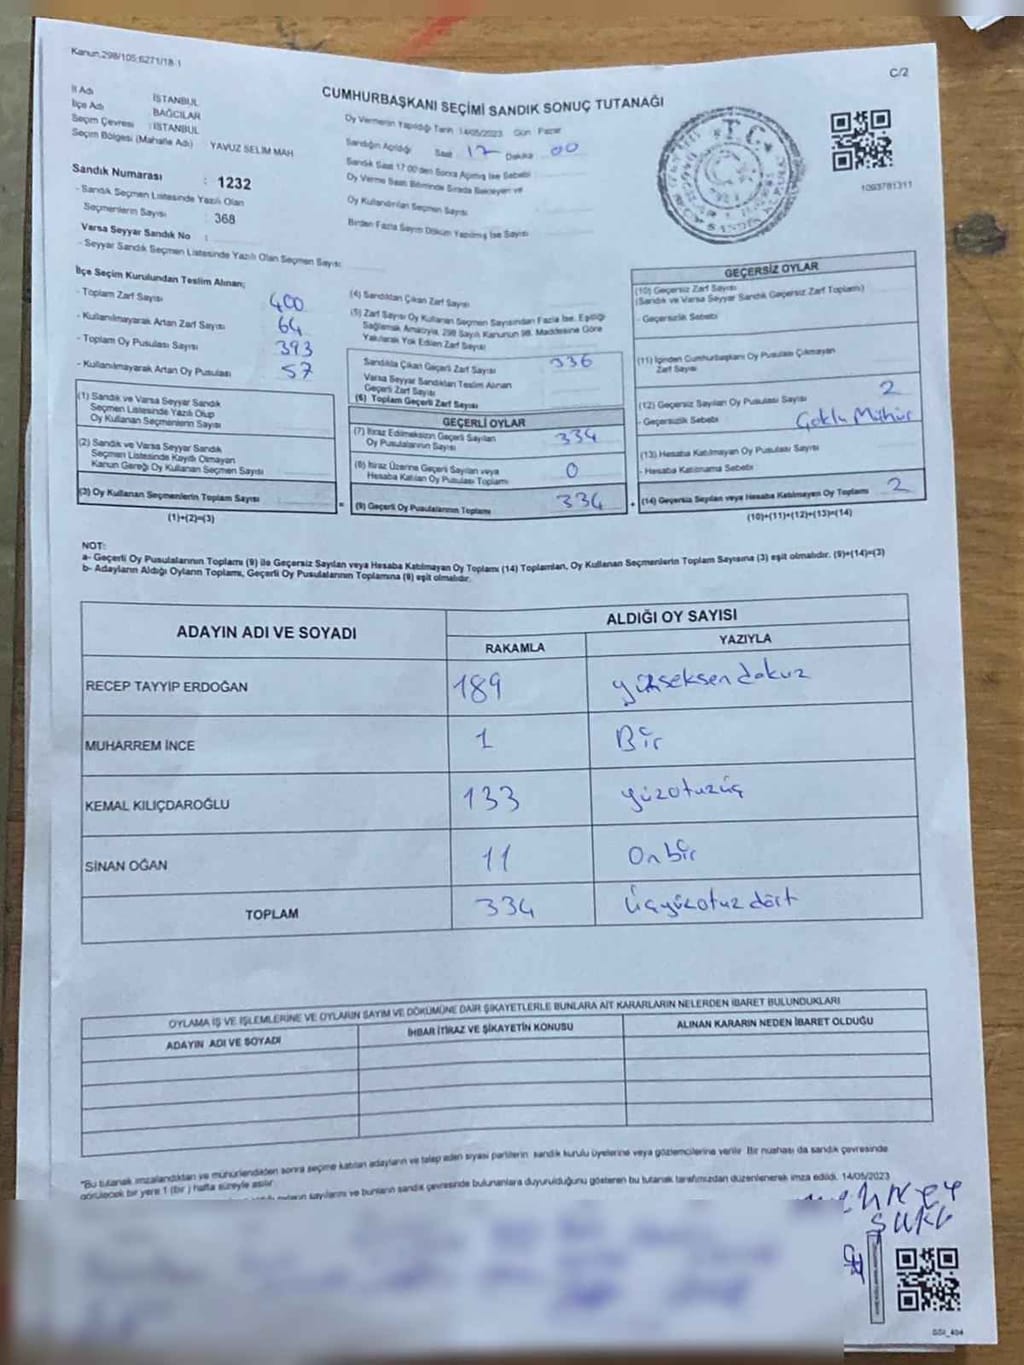 Kanun.298/105;6271/18-1
C/2
CUMHURBAŞKANI SEÇİMİ SANDIK SONUÇ TUTANAĞI
İl Adı İSTANBUL
İlçe Adı BAĞCILAR
Seçim Çevresi : İSTANBUL
Seçim Bölgesi (Mahalle Adı) YAVUZ SELİM MAH
Sandık Numarası : 1232
- Sandık Seçmen Listesinde Yazılı Olan
Seçmenlerin Sayısı : 368
Varsa Seyyar Sandık No :
- Seyyar Sandık Seçmen Listesinde Yazılı Olan Seçmen Sayısı
Oy Vermenin Yapıldığı Tarih 14/05/2023 Gün Pazar
Sandığın Açıldığı Saat 17 Dakika 00
Sandık Saat 17.00'den Sonra Açılmış İse Sebebi
Oy Verme Saati Bitiminde Sırada Bekleyen ve
Oy Kullandırılan Seçmen Sayısı
Birden Fazla Sayım Döküm Yapılmış İse Sayısı
T.C.
1093781311
İlçe Seçim Kurulundan Teslim Alınan;
- Toplam Zarf Sayısı 400
- Kullanılmayarak Artan Zarf Sayısı 64
- Toplam Oy Pusulası Sayısı 393
- Kullanılmayarak Artan Oy Pusulası 57
(1) Sandık ve Varsa Seyyar Sandık
Seçmen Listesinde Yazılı Olup
Oy Kullanan Seçmenlerin Sayısı
(2) Sandık ve Varsa Seyyar Sandık
Seçmen Listesinde Kayıtlı Olmayan
Kanun Gereği Oy Kullanan Seçmen Sayısı
(3) Oy Kullanan Seçmenlerin Toplam Sayısı
(1)+(2)=(3)
(4) Sandıktan Çıkan Zarf Sayısı
(5) Zarf Sayısı Oy Kullanan Seçmen Sayısından Fazla İse, Eşitliği
Sağlamak Amacıyla, 298 Sayılı Kanunun 98. Maddesine Göre
Yakılarak Yok Edilen Zarf Sayısı
Sandıkta Çıkan Geçerli Zarf Sayısı 336
Varsa Seyyar Sandıktan Teslim Alınan
Geçerli Zarf Sayısı
(6) Toplam Geçerli Zarf Sayısı
GEÇERLİ OYLAR
(7) İtiraz Edilmeksizin Geçerli Sayılan
Oy Pusulalarının Sayısı 334
(8) İtiraz Üzerine Geçerli Sayılan veya
Hesaba Katılan Oy Pusulası Toplamı 0
= (9) Geçerli Oy Pusulalarının Toplamı 334
GEÇERSİZ OYLAR
(10) Geçersiz Zarf Sayısı
(Sandık ve Varsa Seyyar Sandık Geçersiz Zarf Toplamı)
- Geçersizlik Sebebi
(11) İçinden Cumhurbaşkanı Oy Pusulası Çıkmayan
Zarf Sayısı
(12) Geçersiz Sayılan Oy Pusulası Sayısı 2
- Geçersizlik Sebebi Çoklu Mühür
(13) Hesaba Katılmayan Oy Pusulası Sayısı
- Hesaba Katılmama Sebebi
+ (14) Geçersiz Sayılan veya Hesaba Katılmayan Oy Toplamı 2
(10)+(11)+(12)+(13)=(14)
NOT:
a- Geçerli Oy Pusulalarının Toplamı (9) ile Geçersiz Sayılan veya Hesaba Katılmayan Oy Toplamı (14) Toplamları, Oy Kullanan Seçmenlerin Toplam Sayısına (3) eşit olmalıdır. (9)+(14)=(3)
b- Adayların Aldığı Oyların Toplamı, Geçerli Oy Pusulalarının Toplamına (9) eşit olmalıdır.
ADAYIN ADI VE SOYADI ALDIĞI OY SAYISI
RAKAMLA YAZIYLA
RECEP TAYYİP ERDOĞAN 189 yüzseksendokuz
MUHARREM İNCE 1 Bir
KEMAL KILIÇDAROĞLU 133 yüzotuzüç
SİNAN OĞAN 11 Onbir
TOPLAM 334 Üçyüzotuzdört
OYLAMA İŞ VE İŞLEMLERİNE VE OYLARIN SAYIM VE DÖKÜMÜNE DAİR ŞİKAYETLERLE BUNLARA AİT KARARLARIN NELERDEN İBARET BULUNDUKLARI
ADAYIN ADI VE SOYADI İHBAR İTİRAZ VE ŞİKAYETİN KONUSU ALINAN KARARIN NEDEN İBARET OLDUĞU
"Bu tutanak imzalandıktan ve mühürlendikten sonra seçime katılan adayların ve talep eden siyasi partilerin sandık kurulu üyelerine veya gözlemcilerine verilir. Bir nüshası da sandık çevresinde
görülecek bir yere 1 (bir) hafta süreyle asılır.
oyların sayılarını ve bunların sandık çevresinde bulunanlara duyurulduğunu gösteren bu tutanak tarafımızdan düzenlenerek imza edildi. 14/05/2023